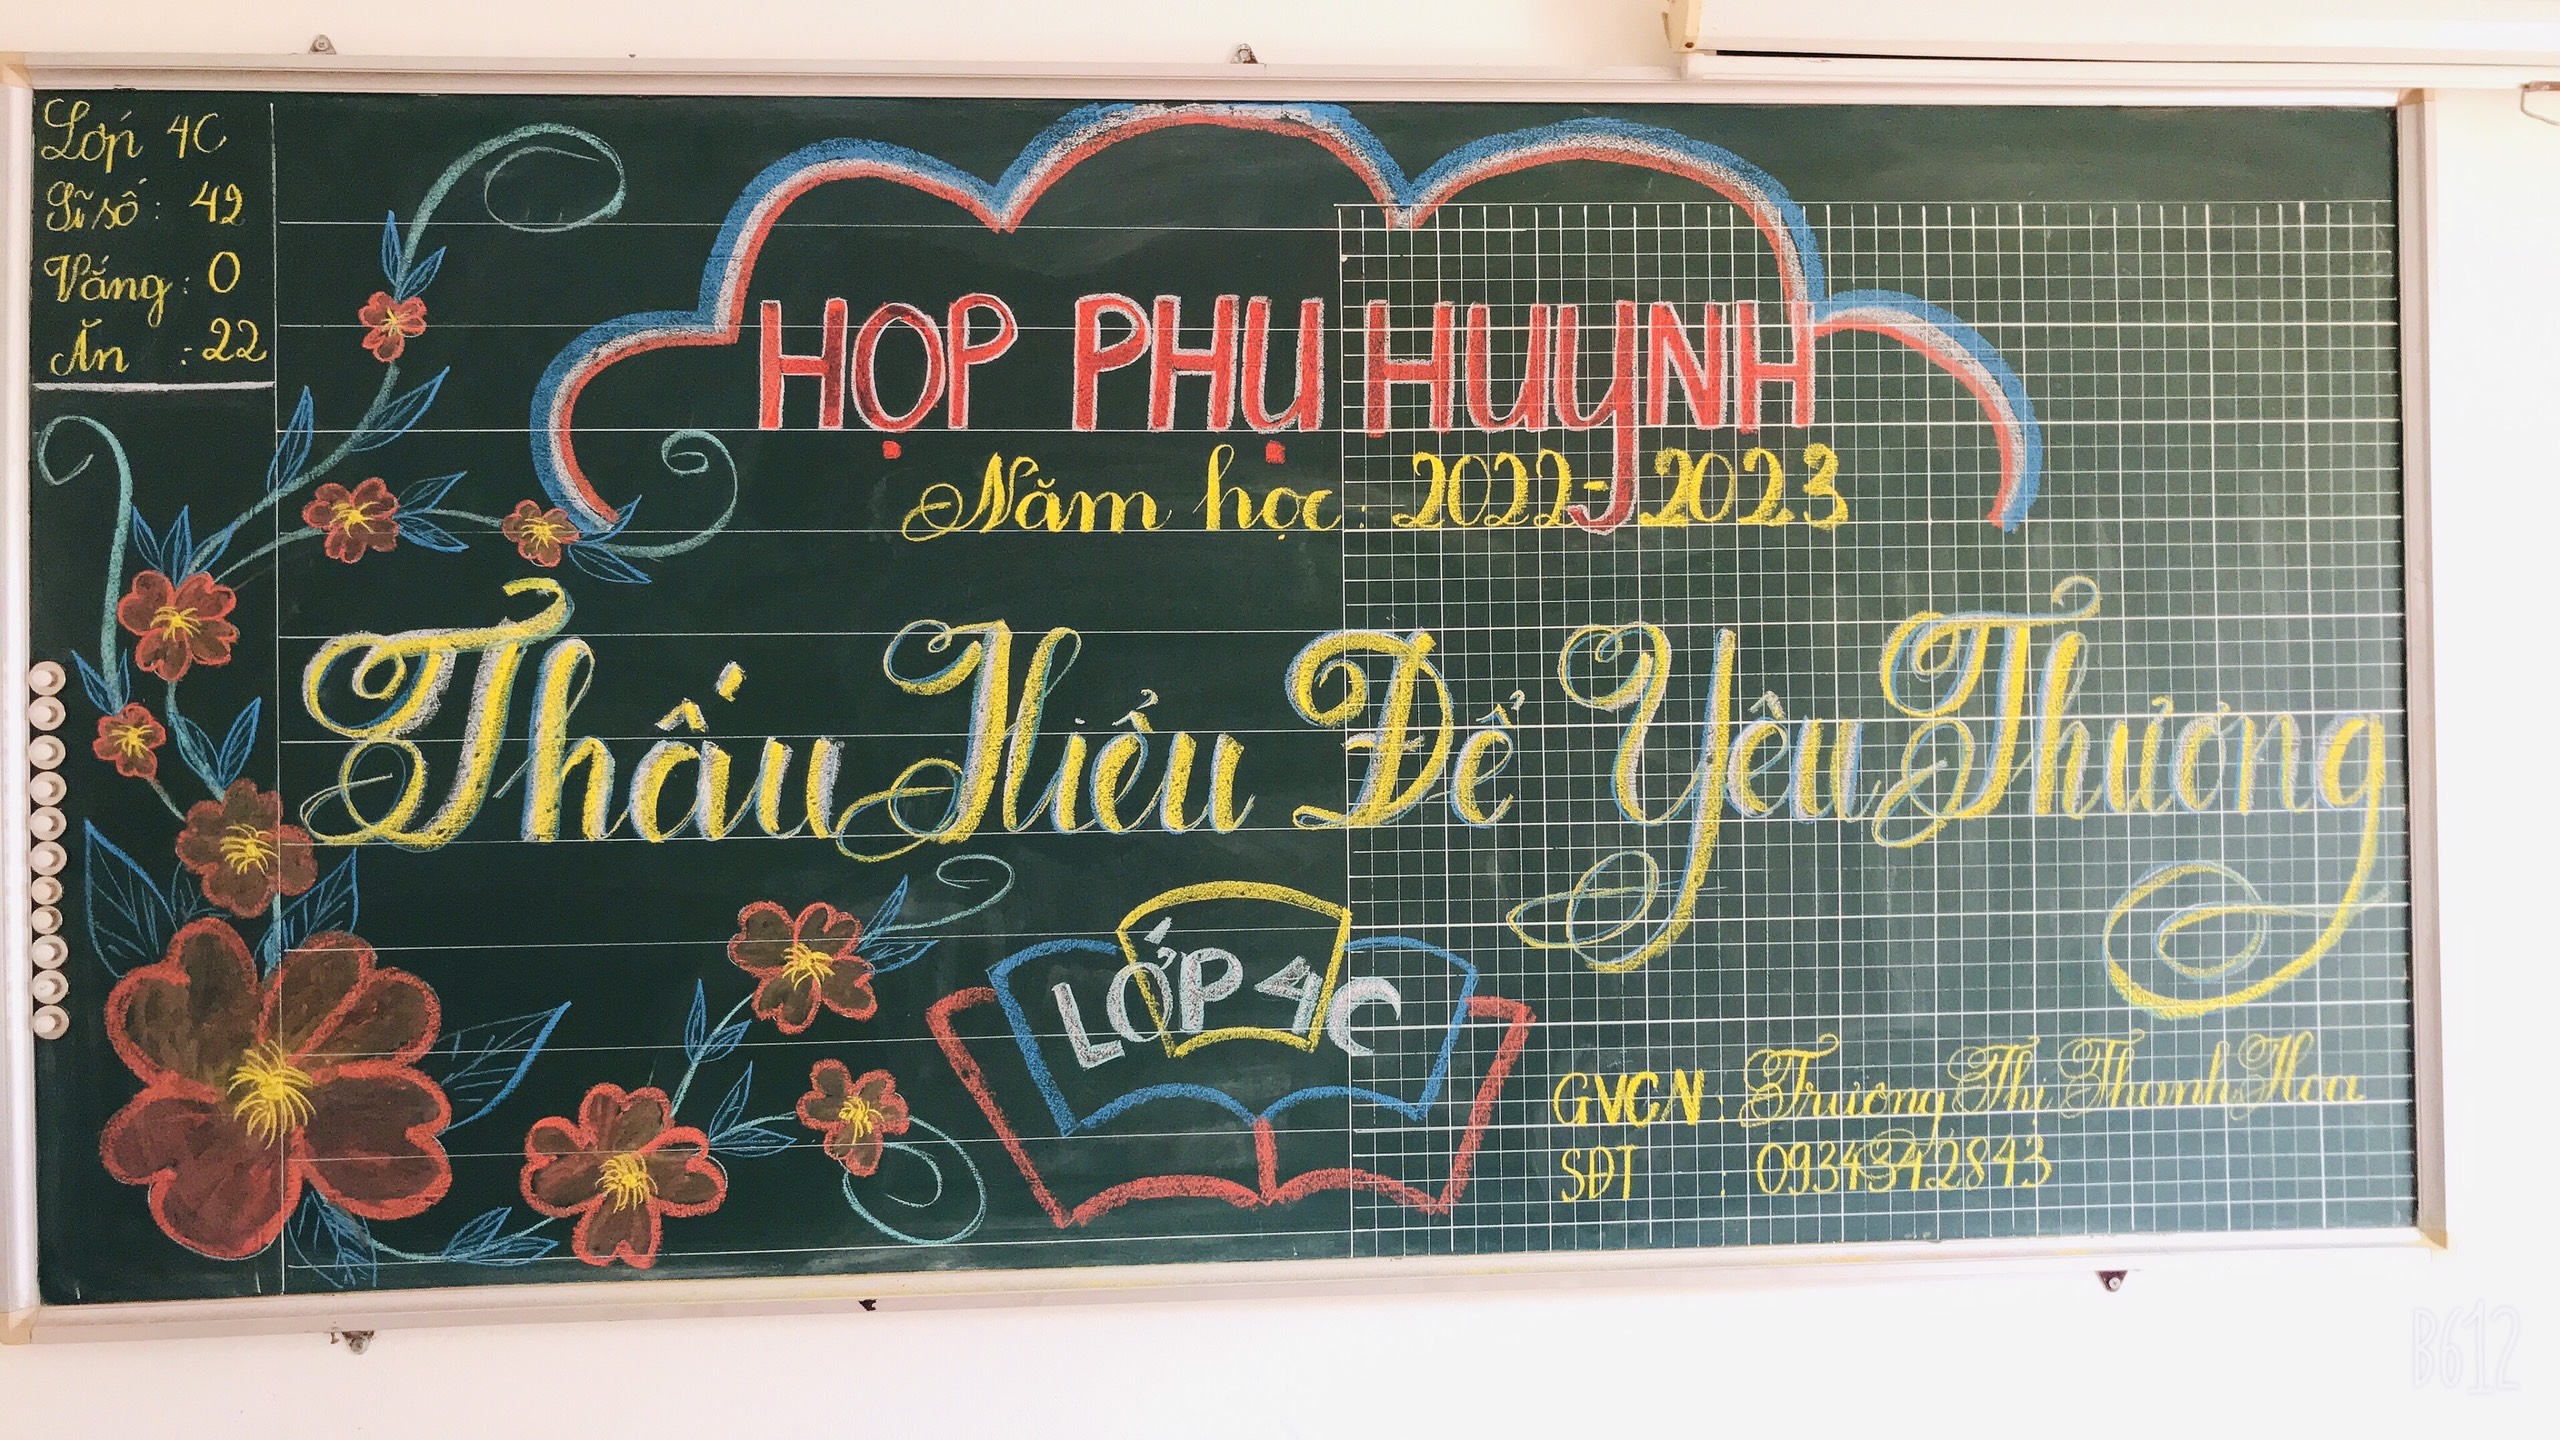 Lớp 4C
Sĩ số: 42
Vắng: 0
Ăn : 22
HỌP PHỤ HUYNH
Năm học: 2022-2023
Thấu Hiểu Để Yêu Thương
LỚP 4C
GVCN: Trương Thị Thanh Hoa
SĐT : 0934342843
B612